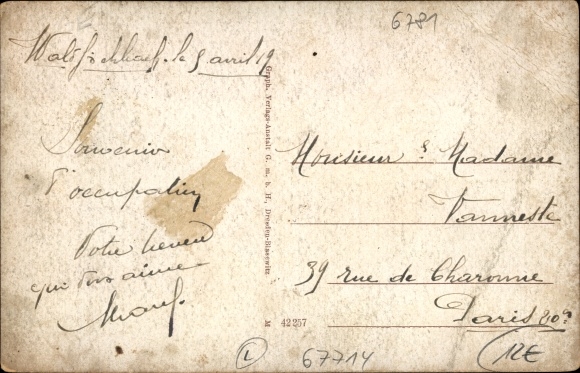 6781
Waldfischbach. le 5 avril 19
Souvenir
d'occupation
Votre neveu
qui vous aime
Marcel
Graph. Verlags-Anstalt G. m. b. H., Dresden-Blasewitz
M 42257
Monsieur & Madame
Vanneste
39 rue de Charonne
Paris
L
67714
12€